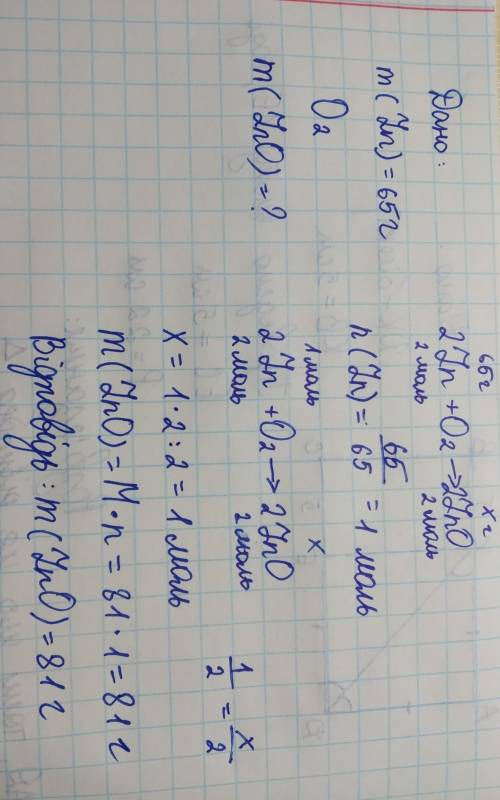 Дано:
m(Zn)=65г
O₂
m(ZnO)=?
65г x г
2Zn + O₂ → 2ZnO
2 моль 2 моль
n(Zn) = 65/65 = 1 моль
1 моль x
2Zn + O₂ → 2ZnO
2 моль 2 моль
1/2 = x/2
x = 1·2:2 = 1 моль
m(ZnO) = M·n = 81·1 = 81 г
Відповідь: m(ZnO) = 81 г